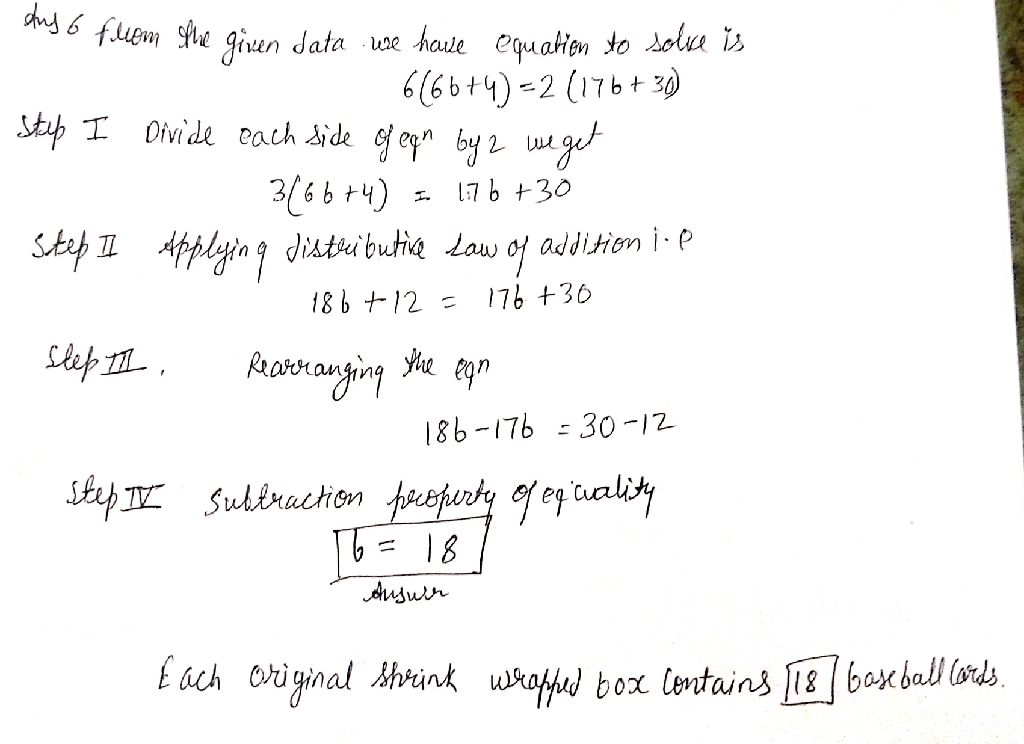 Ans 6 from the given data we have equation to solve is
6(6b+4) = 2 (17b + 30)
Step I Divide each side of eqn by 2 we get
3(6b+4) = 17b +30
Step II Applying distributive law of addition i.e
18b +12 = 17b +30
Step III. Rearranging the eqn
18b-17b = 30-12
Step IV Subtraction property of equality
b = 18
Answer
Each original shrink wrapped box contains 18 baseball cards.